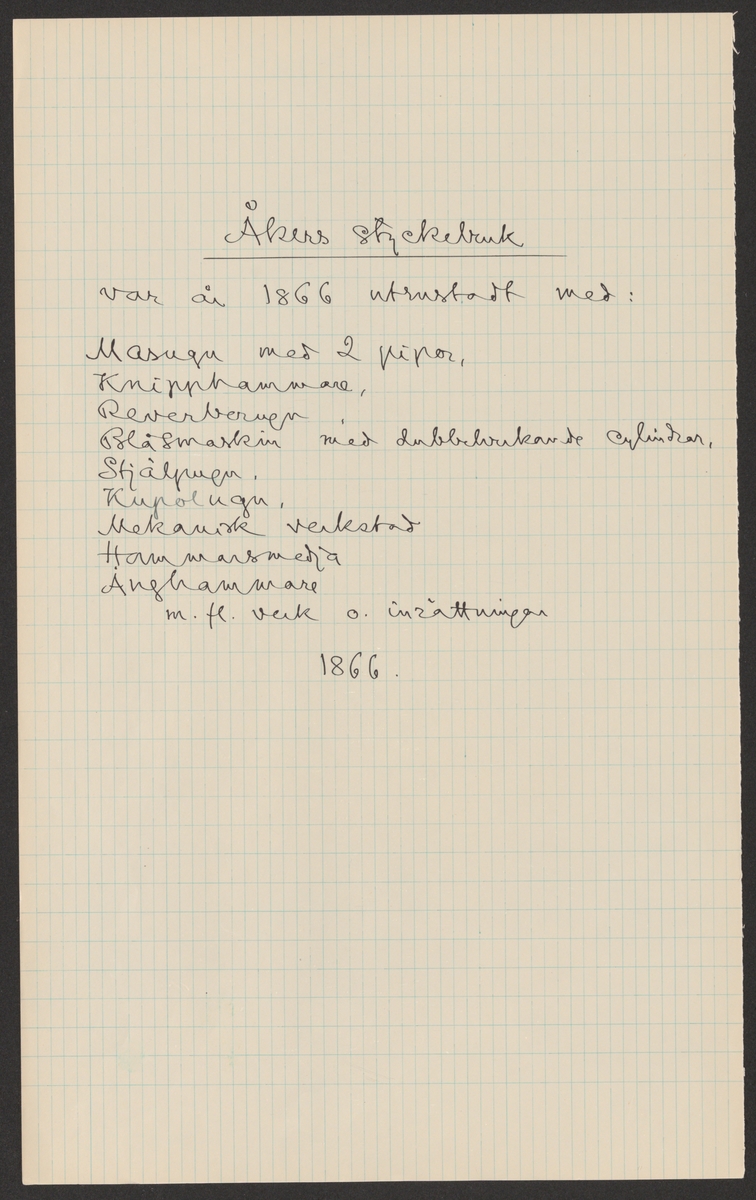 Åkers styckebruk
var år 1866 utrustadt med:
Masugn med 2 pipor,
Knipphammare,
Reverberugn,
Blåsmaskin med dubbelverkande cylindrar,
Stjälpugn,
Kupolugn,
Mekanisk verkstad
Hammarsmedja
Ånghammare
m. fl. verk o. inrättningar
1866.